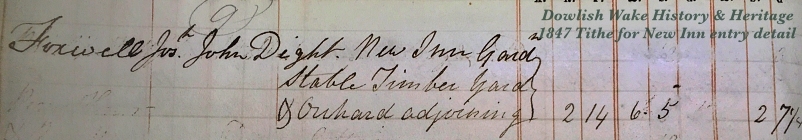 Dowlish Wake History & Heritage
1847 Tithe for New Inn entry detail
Foxwell Josh John Dight. New Inn Gardn
Stable Timber Yard
& Orchard adjoining 2 14 6 5 2 7¼